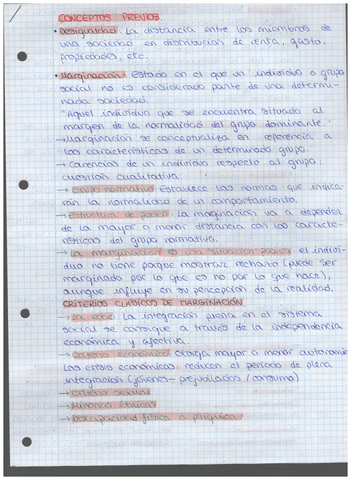 CONCEPTOS PREVIOS
• Desigualdad: La distancia entre los miembros de
una sociedad en distribución de renta, gasto,
propiedades, etc.
• Marginación: Estado en el que un individuo o grupo
social no es considerado parte de una determi-
nada sociedad.
"Aquel individuo que se encuentra situado al
margen de la normalidad del grupo dominante."
→ Marginación se conceptualiza en referencia a
las características de un determinado grupo
→ Carencias de un individuo respecto al grupo:
cuestión cualitativa.
→ Grupo normativo: Establece las normas que indica-
rán la normalidad de un comportamiento.
→ Estructura de poder: La marginación va a depender
de la mayor o menor distancia con las caracte-
rísticas del grupo normativo.
→ La marginación es una situación pasiva: el indivi-
duo no tiene porque mostrar rechazo (puede ser
marginado por lo que es no por lo que hace),
aunque influye en su percepción de la realidad.
CRITERIOS CLÁSICOS DE MARGINACIÓN
→ La edad: La integración plena en el sistema
social se consigue a través de la independencia
económica y afectiva.
→ Criterio económico: Otorga mayor o menor autonomía
Las crisis económicas reducen el período de plena
integración (jóvenes - prejubilados / consumo)
→ Criterio sexual
→ Minorías étnicas
→ Discapacidad física o psíquica